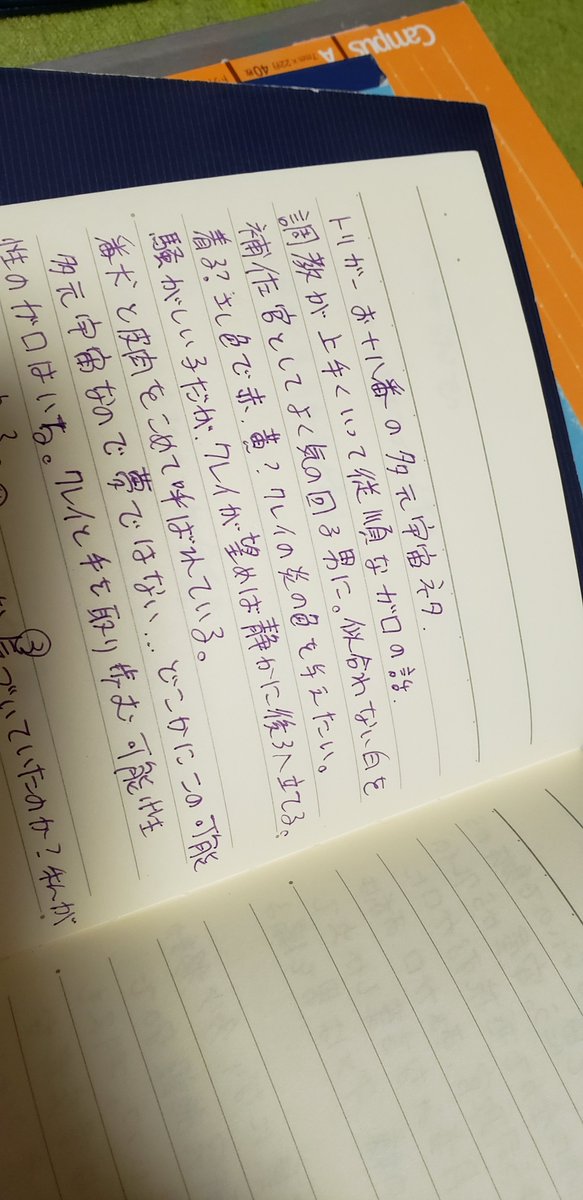 Campus
A 7mm×22行 40枚
トリガーお十八番の多元宇宙ネタ.
調教が上手くいって従順なガロの話.
補佐官としてよく気の回る男に。似合わない白を
着る?さし色で赤、黄?クレイの炎の色を与えたい。
騒がしいうだが、クレイが望めば静かに後ろへ立てる。
番犬と皮肉をこめて呼ばれている。
多元宇宙なので夢ではない…どこかにこの可能
性のガロはいる。クレイと手を取り歩む可能性
③
づいていたのか?